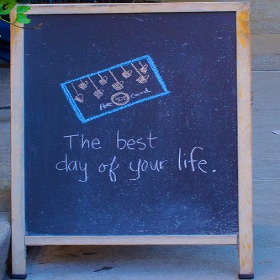 The best
day of your life.